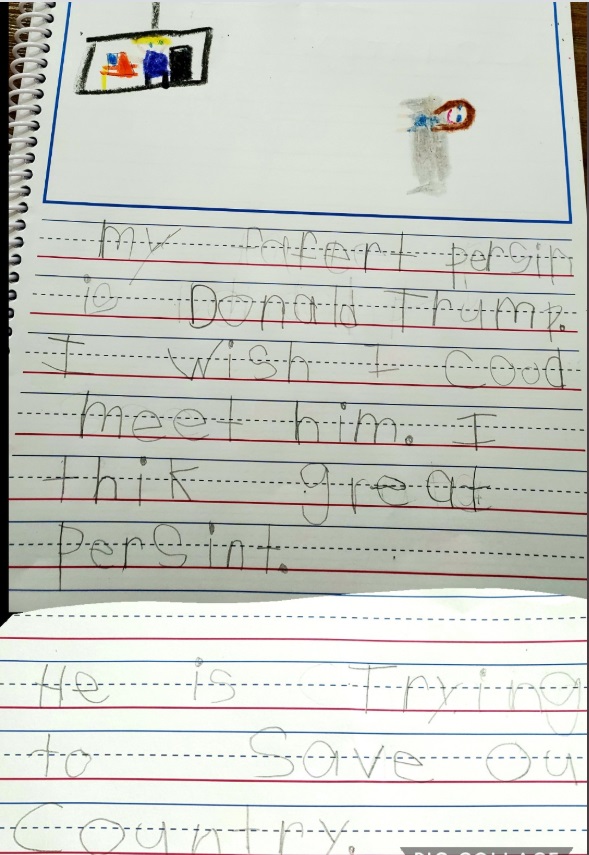 My fafert persin
is Donald Trump.
I wish I cood
meet him. I
thik great
persint.
He is Trying
to Save ou
Country.
PIC COLLAGE